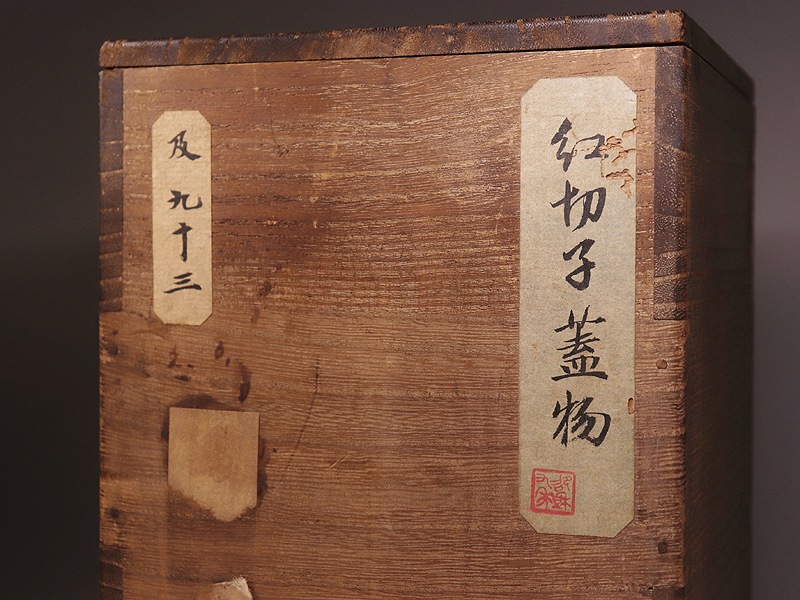 紅切子蓋物
及九十三